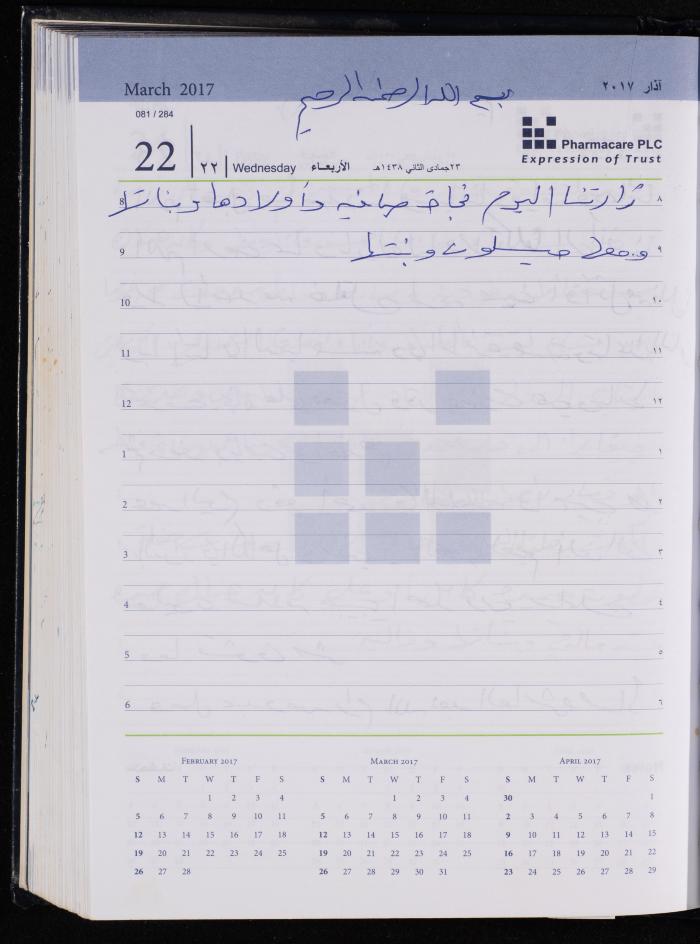 March 2017
آذار ٢٠١٧
بسم الله الرحمن الرحيم
081 / 284
22 ٢٢ Wednesday الأربعاء ٢٣ جمادى الثاني ١٤٣٨هـ
Pharmacare PLC
Expression of Trust
8 زارتنا اليوم نجاة صافيه وأولادها وبناتها ٨
9 ومعها وبنتها ٩
10 ١٠
11 ١١
12 ١٢
1 ١
2 ٢
3 ٣
4 ٤
5 ٥
6 ٦
February 2017 March 2017 April 2017
S M T W T F S S M T W T F S S M T W T F S
1 2 3 4 1 2 3 4 30 1
5 6 7 8 9 10 11 5 6 7 8 9 10 11 2 3 4 5 6 7 8
12 13 14 15 16 17 18 12 13 14 15 16 17 18 9 10 11 12 13 14 15
19 20 21 22 23 24 25 19 20 21 22 23 24 25 16 17 18 19 20 21 22
26 27 28 26 27 28 29 30 31 23 24 25 26 27 28 29